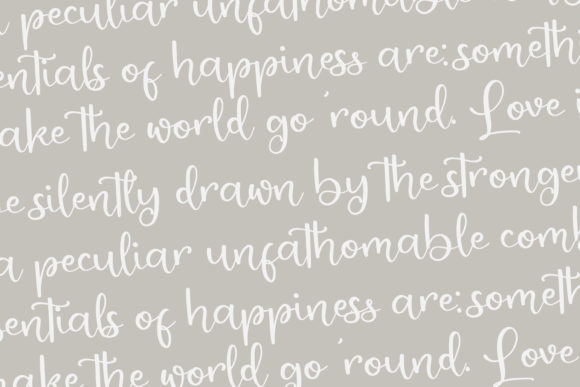 a peculiar unfathomable
entials of happiness are: someth
ake the world go 'round. Love i
e silently drawn by the stronge
a peculiar unfathomable comb
sentials of happiness are: someth
ake the world go 'round. Love